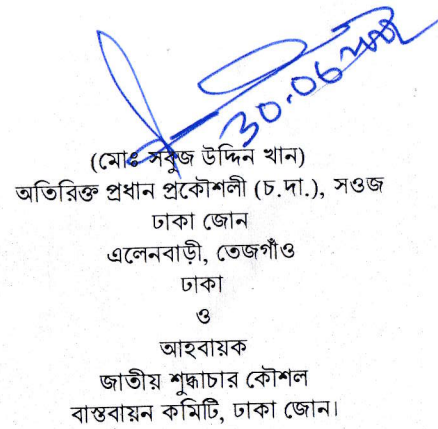 ৩০.০৬
(মোঃ সবুজ উদ্দিন খান)
অতিরিক্ত প্রধান প্রকৌশলী (চ.দা.), সওজ
ঢাকা জোন
এলেনবাড়ী, তেজগাঁও
ঢাকা
ও
আহবায়ক
জাতীয় শুদ্ধাচার কৌশল
বাস্তবায়ন কমিটি, ঢাকা জোন।